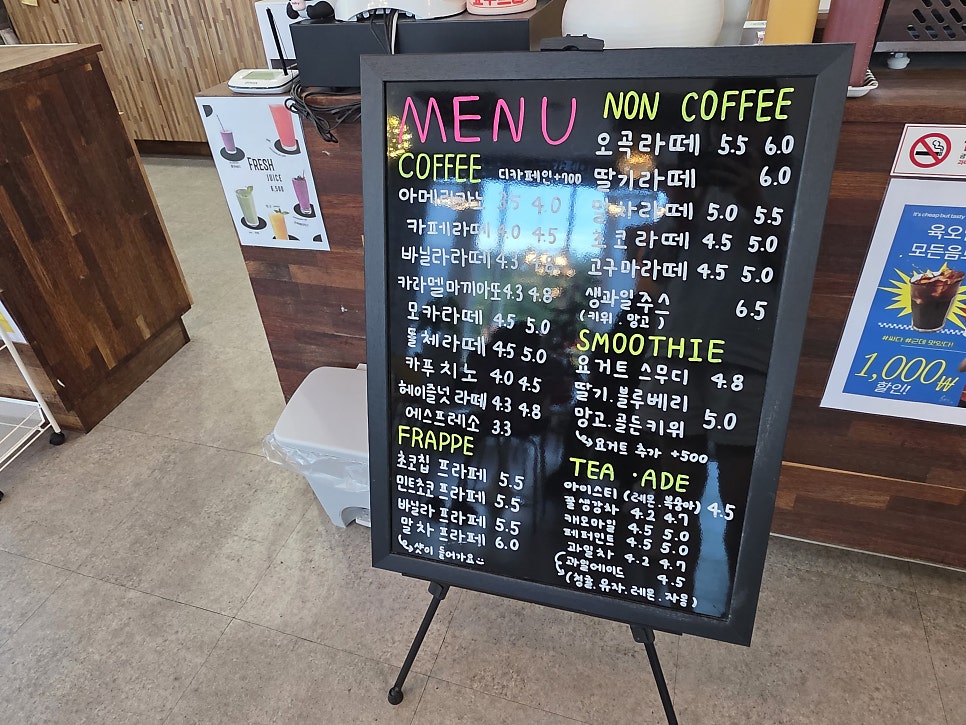 MENU
COFFEE 디카페인+700
아메리카노 3.5 4.0
카페라떼 4.0 4.5
바닐라라떼 4.3 4.8
카라멜마끼아또 4.3 4.8
모카라떼 4.5 5.0
돌체라떼 4.5 5.0
카푸치노 4.0 4.5
헤이즐넛라떼 4.3 4.8
에스프레소 3.3
FRAPPE
초코칩 프라페 5.5
민트초코 프라페 5.5
바닐라 프라페 5.5
말차 프라페 6.0
샷이 들어가요
NON COFFEE
오곡라떼 5.5 6.0
딸기라떼 6.0
말차라떼 5.0 5.5
초코라떼 4.5 5.0
고구마라떼 4.5 5.0
생과일주스 6.5
(키위.망고)
SMOOTHIE
요거트 스무디 4.8
딸기.블루베리
망고.골든키위 5.0
요거트 추가 +500
TEA · ADE
아이스티 (레몬.복숭아) 4.5
꿀생강차 4.2 4.7
캐모마일 4.5 5.0
페퍼민트 4.5 5.0
과일차 4.2 4.7
과일에이드 4.5
(청귤.유자.레몬.자몽)
FRESH
JUICE
6,500
It's cheap but tasty
모든음
#싸다 #근데 맛있다!
1,000₩
할인!